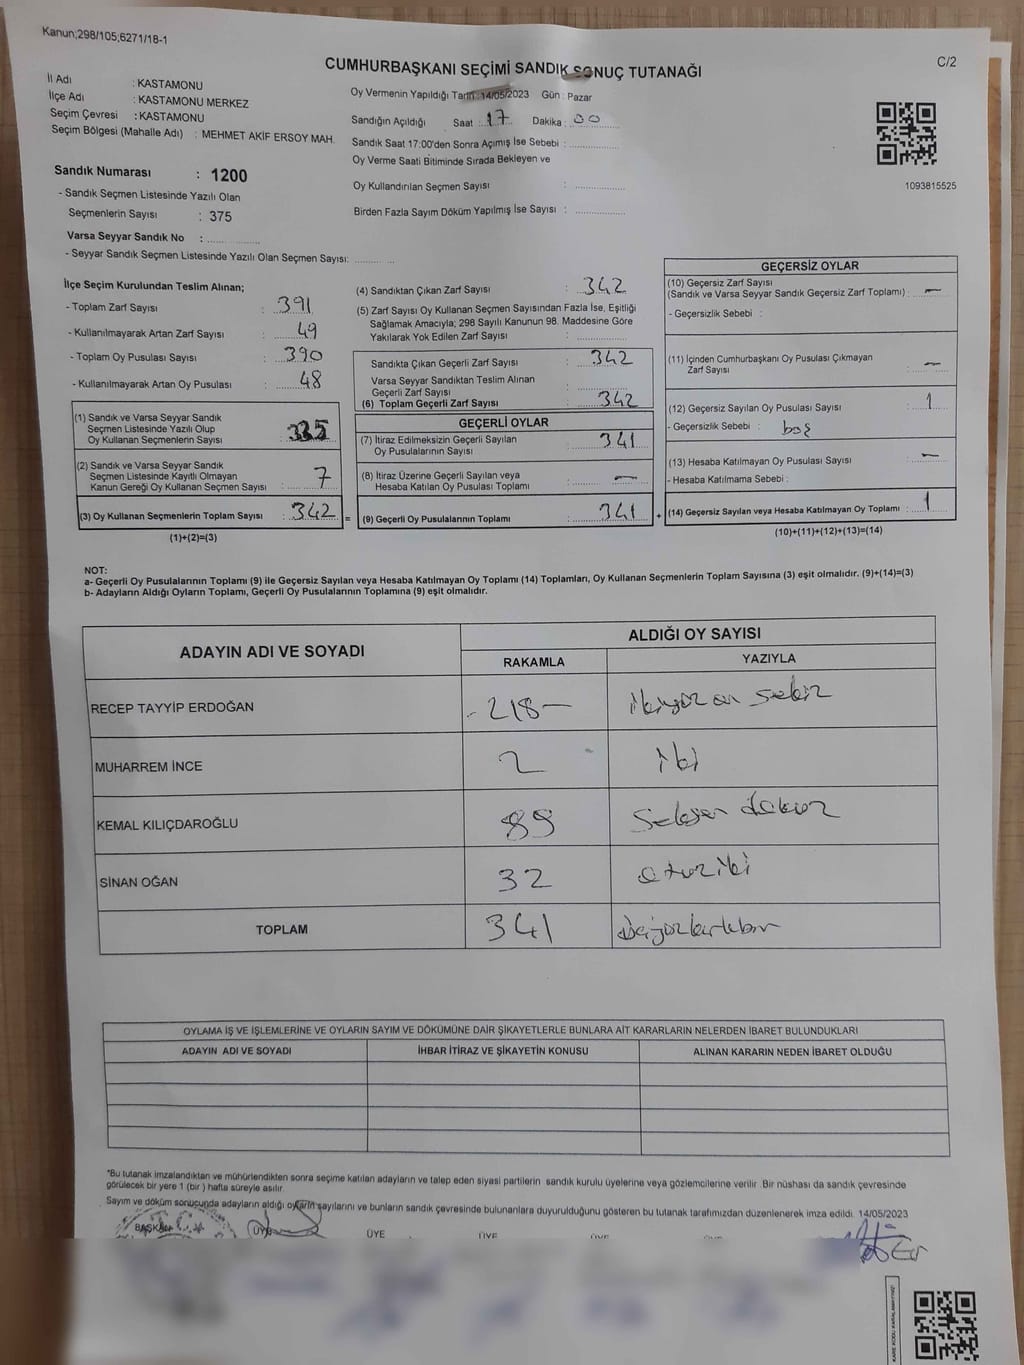 Kanun;298/105;6271/18-1
C/2
CUMHURBAŞKANI SEÇİMİ SANDIK SONUÇ TUTANAĞI
İl Adı : KASTAMONU
İlçe Adı : KASTAMONU MERKEZ
Seçim Çevresi : KASTAMONU
Seçim Bölgesi (Mahalle Adı) : MEHMET AKİF ERSOY MAH.
Sandık Numarası : 1200
- Sandık Seçmen Listesinde Yazılı Olan
Seçmenlerin Sayısı : 375
Varsa Seyyar Sandık No :
- Seyyar Sandık Seçmen Listesinde Yazılı Olan Seçmen Sayısı:
Oy Vermenin Yapıldığı Tarih: 14/05/2023 Gün : Pazar
Sandığın Açıldığı Saat : 17 Dakika : 00
Sandık Saat 17:00'den Sonra Açımış İse Sebebi :
Oy Verme Saati Bitiminde Sırada Bekleyen ve
Oy Kullandırılan Seçmen Sayısı :
Birden Fazla Sayım Döküm Yapılmış İse Sayısı :
1093815525
İlçe Seçim Kurulundan Teslim Alınan;
- Toplam Zarf Sayısı : 391
- Kullanılmayarak Artan Zarf Sayısı : 49
- Toplam Oy Pusulası Sayısı : 390
- Kullanılmayarak Artan Oy Pusulası : 48
(1) Sandık ve Varsa Seyyar Sandık
Seçmen Listesinde Yazılı Olup
Oy Kullanan Seçmenlerin Sayısı : 335
(2) Sandık ve Varsa Seyyar Sandık
Seçmen Listesinde Kayıtlı Olmayan
Kanun Gereği Oy Kullanan Seçmen Sayısı : 7
(3) Oy Kullanan Seçmenlerin Toplam Sayısı : 342 =
(1)+(2)=(3)
(4) Sandıktan Çıkan Zarf Sayısı : 342
(5) Zarf Sayısı Oy Kullanan Seçmen Sayısından Fazla İse, Eşitliği
Sağlamak Amacıyla; 298 Sayılı Kanunun 98. Maddesine Göre
Yakılarak Yok Edilen Zarf Sayısı :
Sandıkta Çıkan Geçerli Zarf Sayısı : 342
Varsa Seyyar Sandıktan Teslim Alınan
Geçerli Zarf Sayısı :
(6) Toplam Geçerli Zarf Sayısı : 342
GEÇERLİ OYLAR
(7) İtiraz Edilmeksizin Geçerli Sayılan
Oy Pusulalarının Sayısı : 341
(8) İtiraz Üzerine Geçerli Sayılan veya
Hesaba Katılan Oy Pusulası Toplamı : —
(9) Geçerli Oy Pusulalarının Toplamı : 341 +
GEÇERSİZ OYLAR
(10) Geçersiz Zarf Sayısı
(Sandık ve Varsa Seyyar Sandık Geçersiz Zarf Toplamı) : —
- Geçersizlik Sebebi :
(11) İçinden Cumhurbaşkanı Oy Pusulası Çıkmayan
Zarf Sayısı : —
(12) Geçersiz Sayılan Oy Pusulası Sayısı : 1
- Geçersizlik Sebebi : boş
(13) Hesaba Katılmayan Oy Pusulası Sayısı : —
- Hesaba Katılmama Sebebi :
(14) Geçersiz Sayılan veya Hesaba Katılmayan Oy Toplamı : 1
(10)+(11)+(12)+(13)=(14)
NOT:
a- Geçerli Oy Pusulalarının Toplamı (9) ile Geçersiz Sayılan veya Hesaba Katılmayan Oy Toplamı (14) Toplamları, Oy Kullanan Seçmenlerin Toplam Sayısına (3) eşit olmalıdır. (9)+(14)=(3)
b- Adayların Aldığı Oyların Toplamı, Geçerli Oy Pusulalarının Toplamına (9) eşit olmalıdır.
ADAYIN ADI VE SOYADI
ALDIĞI OY SAYISI
RAKAMLA YAZIYLA
RECEP TAYYİP ERDOĞAN -218- ikiyüz on sekiz
MUHARREM İNCE 2 iki
KEMAL KILIÇDAROĞLU 89 Seksen dokuz
SİNAN OĞAN 32 otuz iki
TOPLAM 341 üçyüzkırkbir
OYLAMA İŞ VE İŞLEMLERİNE VE OYLARIN SAYIM VE DÖKÜMÜNE DAİR ŞİKAYETLERLE BUNLARA AİT KARARLARIN NELERDEN İBARET BULUNDUKLARI
ADAYIN ADI VE SOYADI İHBAR İTİRAZ VE ŞİKAYETİN KONUSU ALINAN KARARIN NEDEN İBARET OLDUĞU
*Bu tutanak imzalandıktan ve mühürlendikten sonra seçime katılan adayların ve talep eden siyasi partilerin sandık kurulu üyelerine veya gözlemcilerine verilir .Bir nüshası da sandık çevresinde
görülecek bir yere 1 (bir ) hafta süreyle asılır.
Sayım ve döküm sonucunda adayların aldığı oyların sayılarını ve bunların sandık çevresinde bulunanlara duyurulduğunu gösteren bu tutanak tarafımızdan düzenlenerek imza edildi. 14/05/2023
BAŞKAN ÜYE ÜYE ÜYE